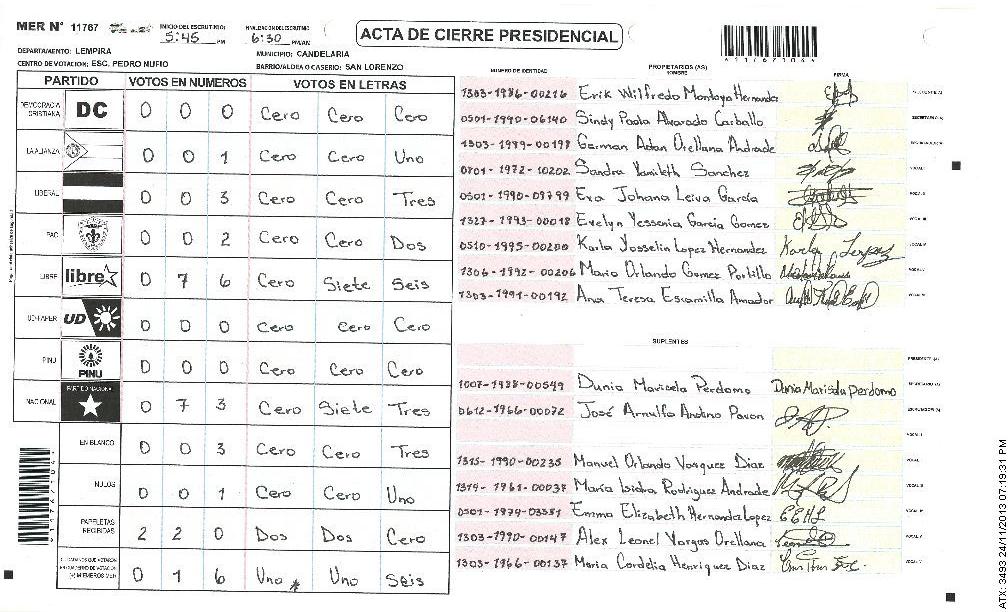 MER N° 11767
INICIO DEL ESCRUTINIO: 5:45 PM
6:30 PM/AM
ACTA DE CIERRE PRESIDENCIAL
DEPARTAMENTO: LEMPIRA
MUNICIPIO: CANDELARIA
CENTRO DE VOTACION: ESC. PEDRO NUFIO
BARRIO/ALDEA O CASERIO: SAN LORENZO
PARTIDO VOTOS EN NUMEROS VOTOS EN LETRAS
DEMOCRACIA CRISTIANA DC 0 0 0 Cero Cero Cero
LA ALIANZA 0 0 1 Cero Cero Uno
LIBERAL 0 0 3 Cero Cero Tres
PAC 0 0 2 Cero Cero Dos
LIBRE libre 0 7 6 Cero Siete Seis
UD 0 0 0 Cero Cero Cero
PINU PINU 0 0 0 Cero Cero Cero
NACIONAL PARTIDO NACIONAL 0 7 3 Cero Siete Tres
EN BLANCO 0 0 3 Cero Cero Tres
NULOS 0 0 1 Cero Cero Uno
PAPELETAS RECIBIDAS 2 2 0 Dos Dos Cero
0 1 6 Uno Uno Seis
NUMERO DE IDENTIDAD PROPIETARIOS (AS) NOMBRE FIRMA
1303-1986-00216 Erik Wilfredo Montoya Hernandez
0501-1990-06140 Sindy Paola Alvarado Carballo
1303-1989-00198 German Adan Orellana Andrade
0801-1972-10202 Sandra Yamileth Sanchez
0501-1990-09799 Eva Johana Leiva García
1327-1993-00018 Evelyn Yessenia Garcia Gomez
0510-1995-00200 Karla Yosselin Lopez Hernandez
1306-1992-00206 Mario Orlando Gomez Portillo
1303-1991-00192 Ana Teresa Escamilla Amador
SUPLENTES
1007-1988-00549 Dunia Maricela Perdomo
0612-1966-00072 José Arnulfo Andino Pavon
1315-1990-00235 Manuel Orlando Vasquez Diaz
1314-1961-00037 María Isidra Rodriguez Andrade
0501-1979-03581 Emma Elizabeth Hernandez Lopez EEHL
1303-1990-00147 Alex Leonel Vargas Orellana
1303-1966-00137 Maria Cordelia Henriquez Diaz
ATX: 3493 24/11/2013 07:19:31 PM